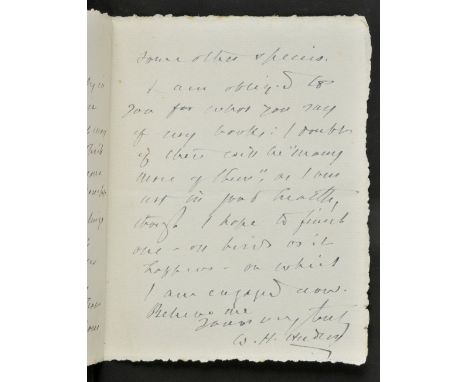 some other species.
I am obliged to
you for what you say
of my books: I doubt
if there will be "many
more of them", as I am
not in good health,
though I hope to finish
one - on birds as it
happens - on which
I am engaged now.
Believe me
Yours very truly
W. H. Hudson